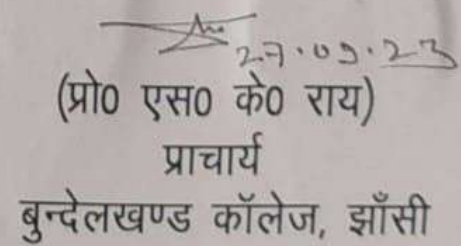 27.09.23
(प्रो0 एस0 के0 राय)
प्राचार्य
बुन्देलखण्ड कॉलेज, झाँसी